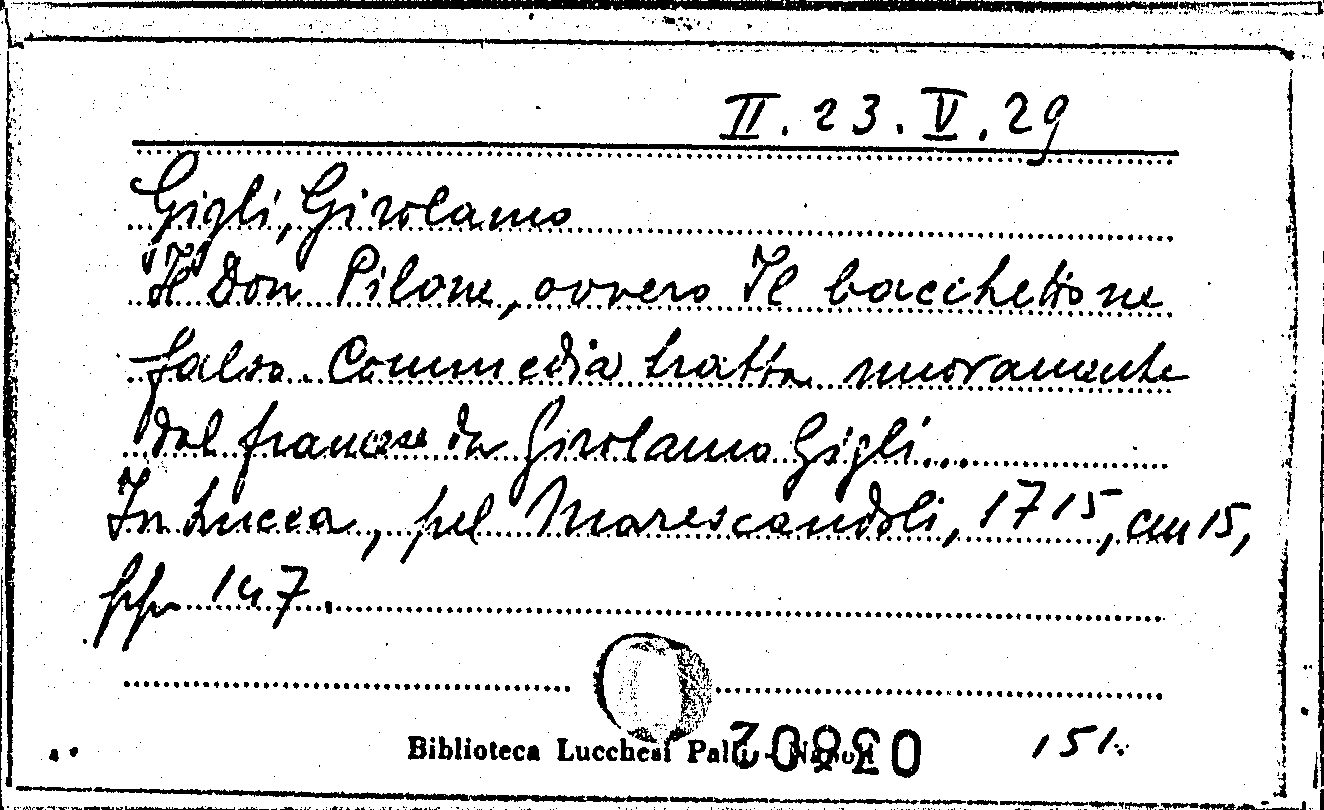 II. 23. V. 29
Gigli, Girolamo
Il Don Pilone, ovvero Il bacchettone
falso. Commedia tratta nuovamente
dal francese da Girolamo Gigli...
In Lucca, pel Marescandoli, 1715, cm 15,
pp. 147.
Biblioteca Lucchesi Palli - Napoli
151.